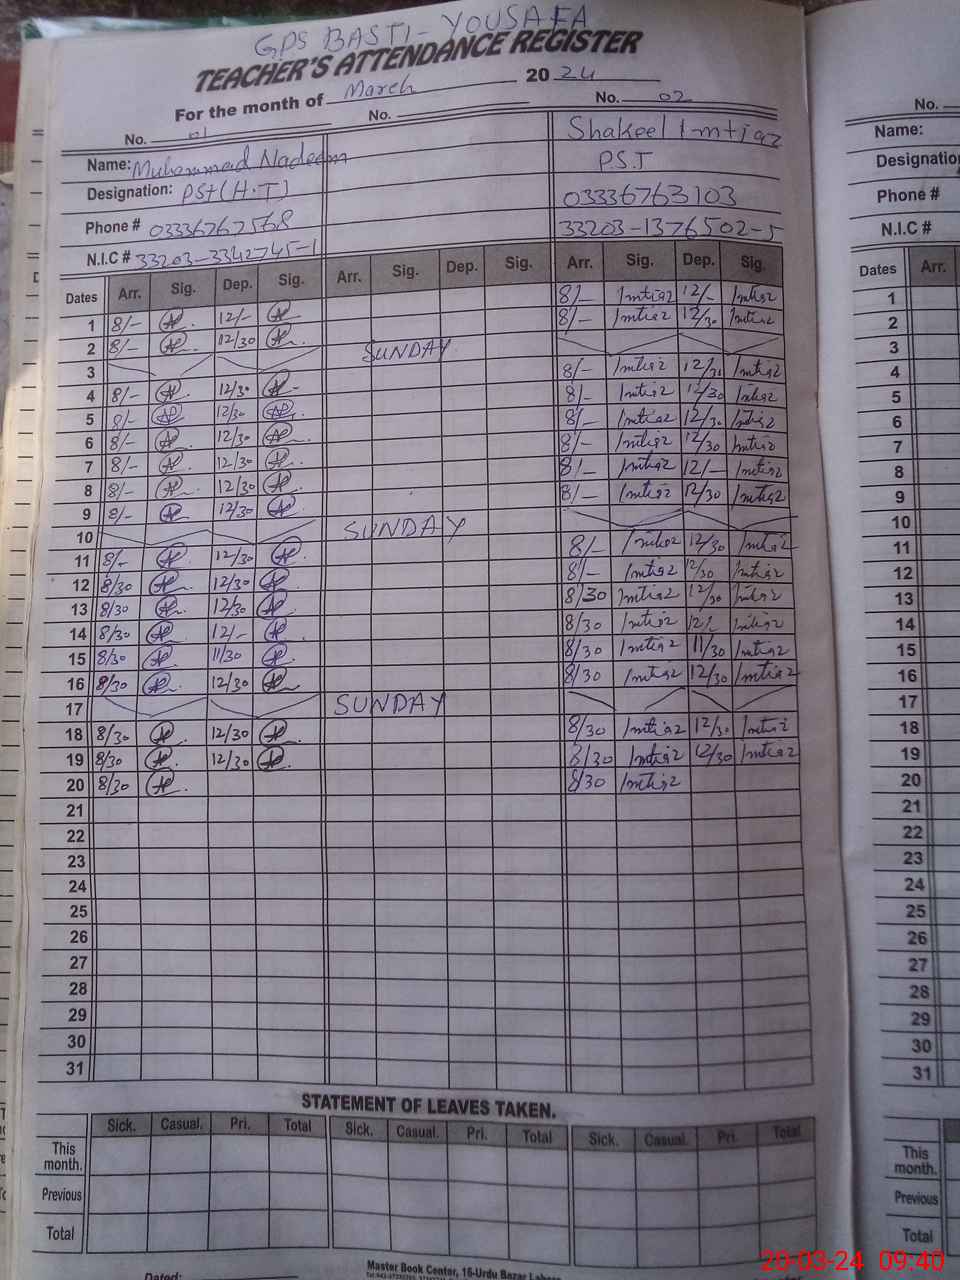 GPS BASTI-YOUSAFA
TEACHER'S ATTENDANCE REGISTER
For the month of March 2024
No. 01 No. No. 02
Name: Muhammad Nadeem Shakeel Imtiaz
Designation: PST(H.T) P.S.T
Phone # 03336763103
N.I.C # 33203-3342745-1 33203-1376502-5
Dates Arr. Sig. Dep. Sig. Arr. Sig. Dep. Sig. Arr. Sig. Dep. Sig.
1 8/- 12/- 8/- Imtiaz 12/- Imtiaz
2 8/- 12/30 8/- Imtiaz 12/30 Imtiaz
3 SUNDAY
4 8/- 12/30 8/- Imtiaz 12/30 Imtiaz
5 8/- 12/30 8/- Imtiaz 12/30 Imtiaz
6 8/- 12/30 8/- Imtiaz 12/30 Imtiaz
7 8/- 12/30 8/- Imtiaz 12/30 Imtiaz
8 8/- 12/30 8/- Imtiaz 12/- Imtiaz
9 8/- 12/30 8/- Imtiaz 12/30 Imtiaz
10 SUNDAY
11 8/- 12/30 8/- Imtiaz 12/30 Imtiaz
12 8/30 12/30 8/- Imtiaz 12/30 Imtiaz
13 8/30 12/30 8/30 Imtiaz 12/30 Imtiaz
14 8/30 12/- 8/30 Imtiaz 12/- Imtiaz
15 8/30 11/30 8/30 Imtiaz 11/30 Imtiaz
16 8/30 12/30 8/30 Imtiaz 12/30 Imtiaz
17 SUNDAY
18 8/30 12/30 8/30 Imtiaz 12/30 Imtiaz
19 8/30 12/30 8/30 Imtiaz 12/30 Imtiaz
20 8/30 8/30 Imtiaz
21
22
23
24
25
26
27
28
29
30
31
STATEMENT OF LEAVES TAKEN.
Sick. Casual. Pri. Total Sick. Casual. Pri. Total Sick. Casual. Pri. Total
This month.
Previous
Total
Dated:
Master Book Center, 16-Urdu Bazar
No.
Name:
Designation
Phone #
N.I.C #
Dates Arr.
1
2
3
4
5
6
7
8
9
10
11
12
13
14
15
16
17
18
19
20
21
22
23
24
25
26
27
28
29
30
31
This month.
Previous
Total
20-03-24 09:40